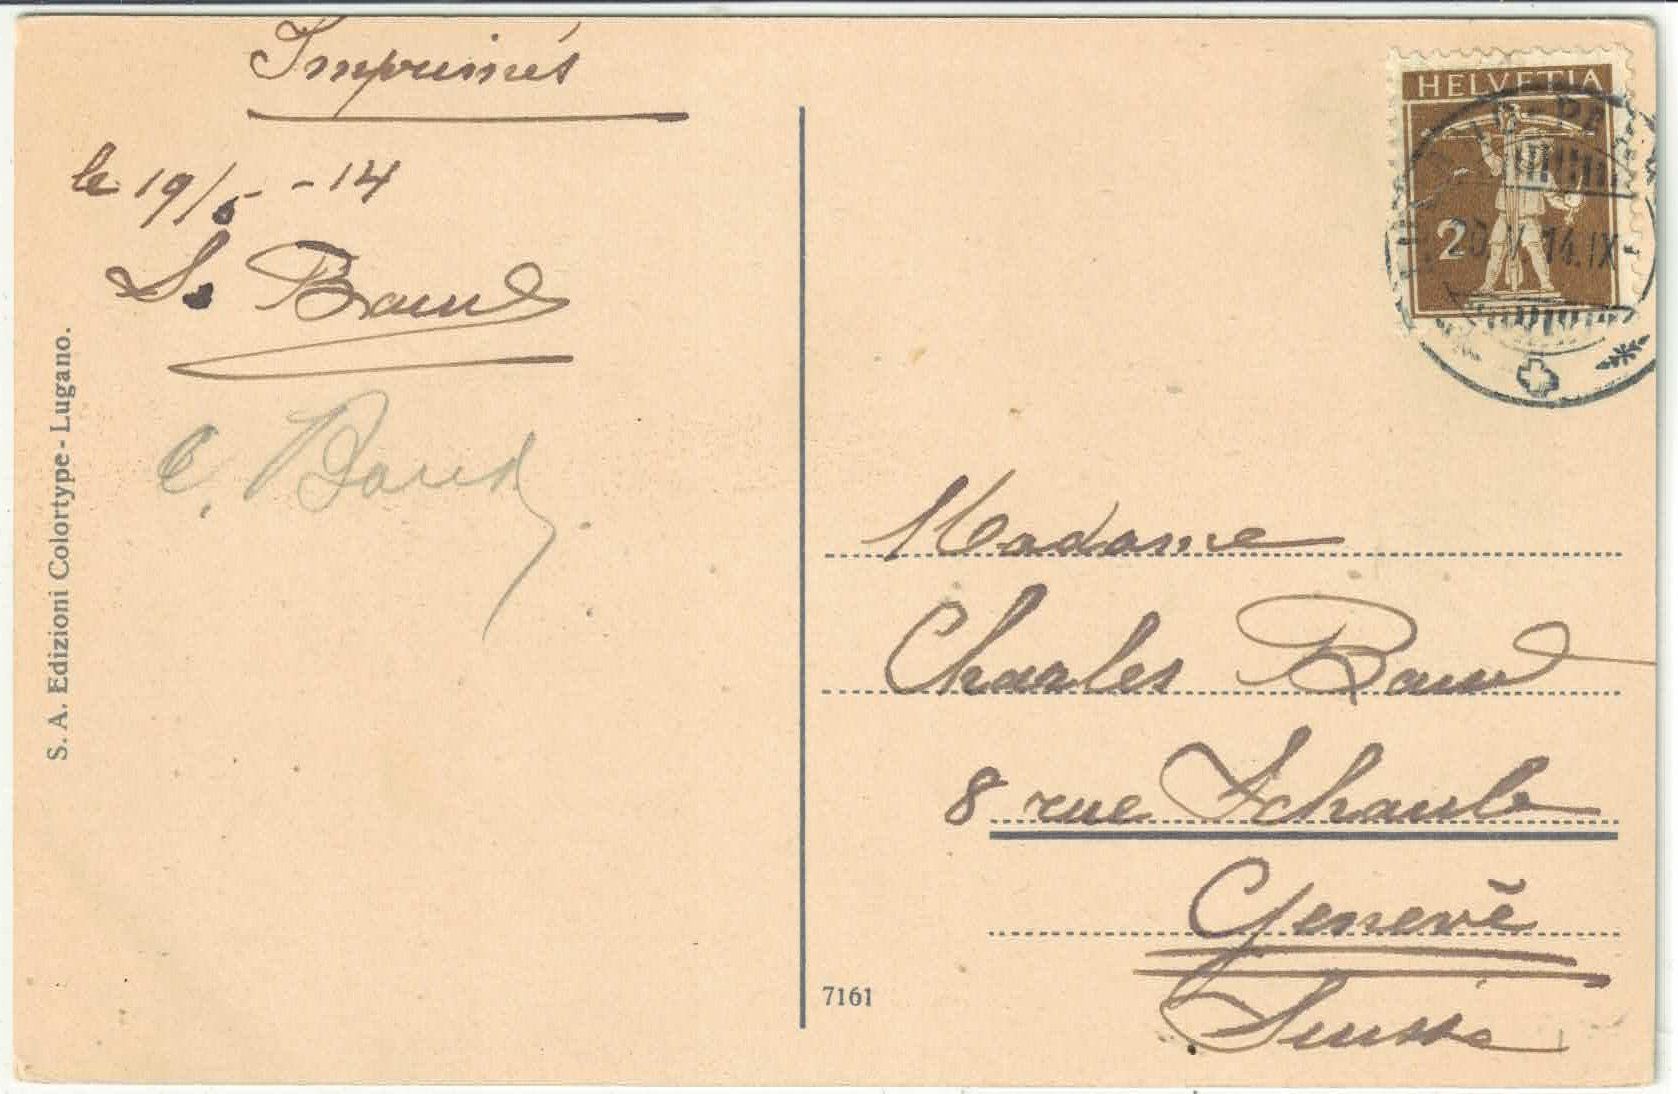 Imprimés
le 19/5 - 14
S. Baud
C. Baud
S. A. Edizioni Colortype - Lugano.
HELVETIA
2
20. V. 14. IX
Madame
Charles Baud
8 rue Schaub
Genevē
Suisse
7161